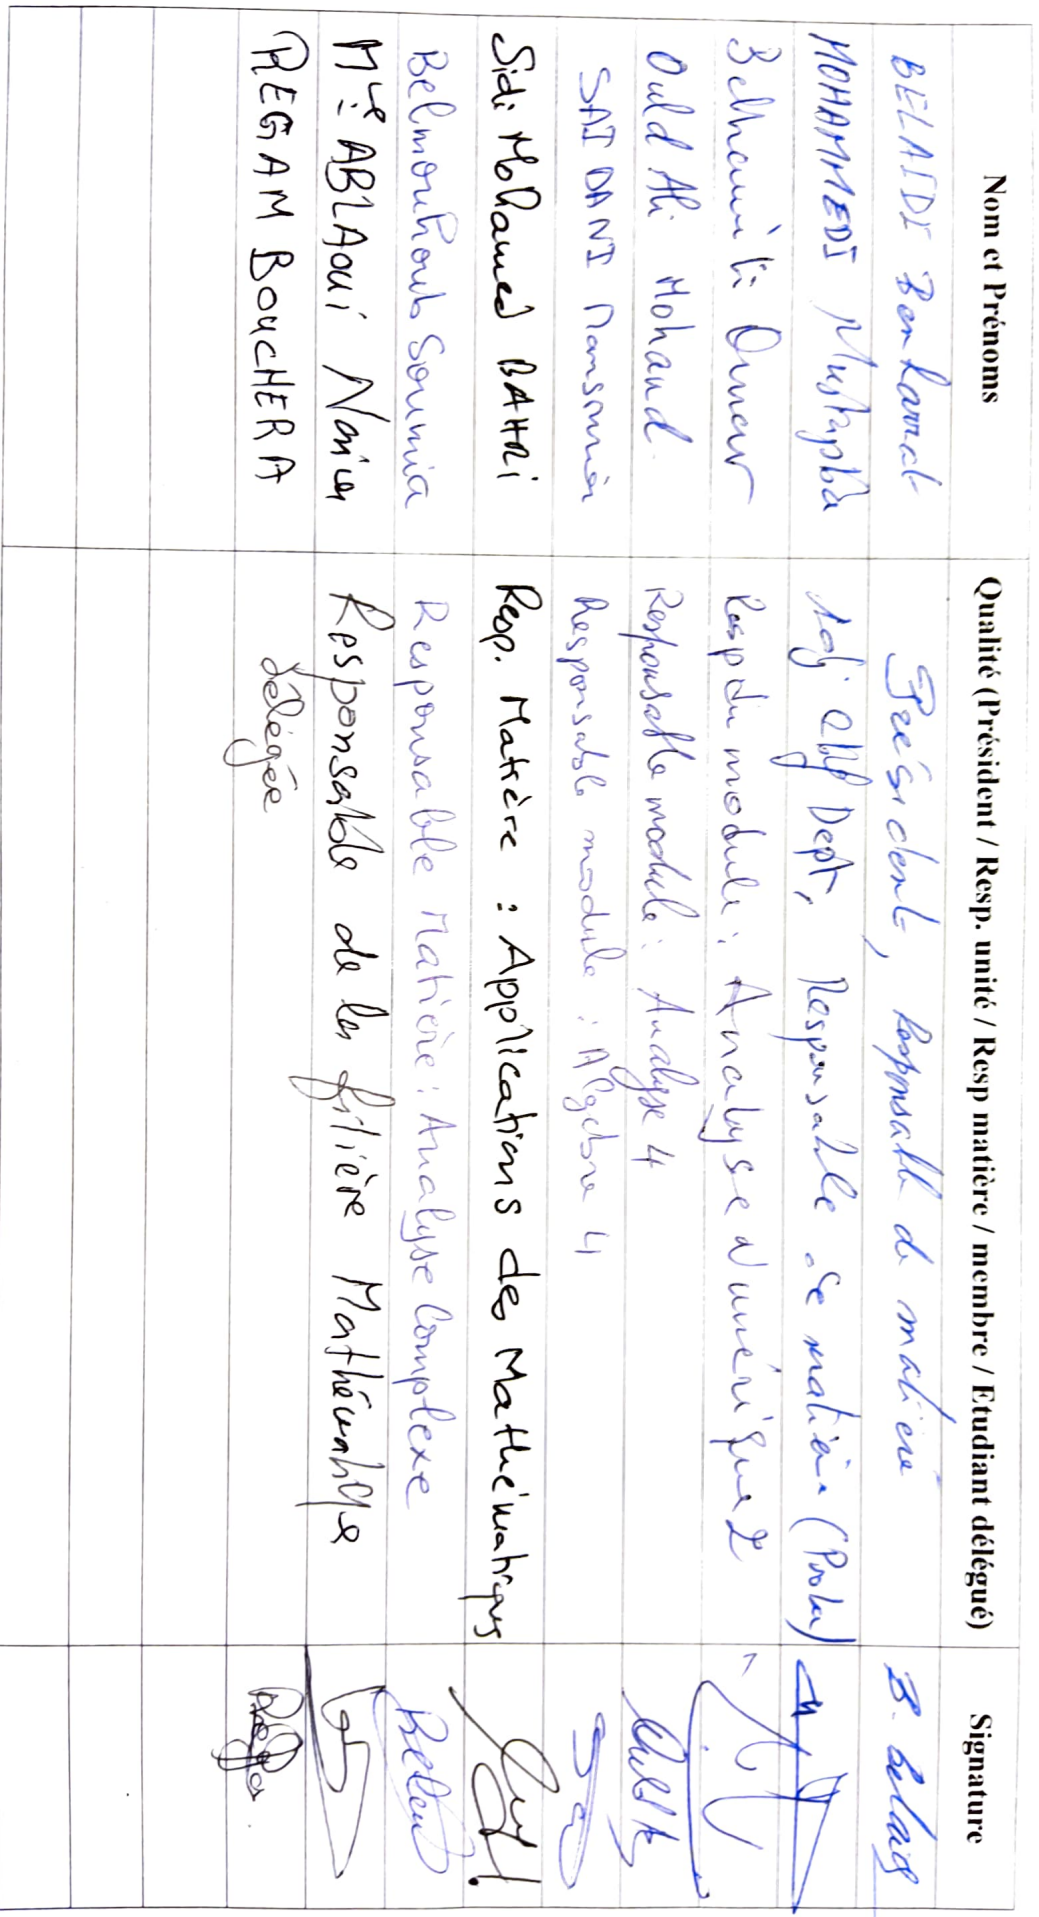 Nom et Prénoms Qualité (Président / Resp. unité / Resp matière / membre / Etudiant délégué) Signature
BELAIDI Benharrat Président, Responsable de matière B. Belaidi
MOHAMMEDI Mustapha Adj Chef Dept, Responsable de matière (Proba)
Belhamiti Omar Resp du module : Analyse Numérique 2
Ould Ali Mohand Responsable module : Analyse 4
SAIDANI Mansouria Responsable module : Algebre 4
Sidi Mohamed BAHRI Resp. Matière : Applications des Mathématiques
Belmouhoub Soumia Responsable Matière : Analyse Complexe
Mlle ABLAOUI Responsable de la filière Mathématique
REGAM BOUCHERA déléguée